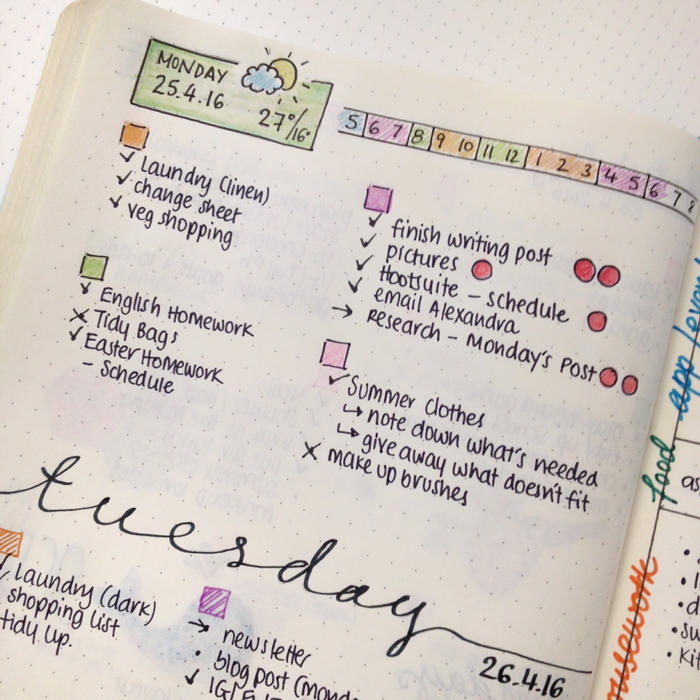 MONDAY
25.4.16
27°/16°
5 6 7 8 9 10 11 12 1 2 3 4 5 6 7 8
✓ Laundry (linen)
✓ change sheet
✓ veg shopping
✓ English Homework
✗ Tidy Bags
✓ Easter Homework
– Schedule
✓ finish writing post
✓ pictures
✓ Hootsuite – schedule
✓ email Alexandra
→ research – Monday's Post
✓ Summer clothes
↳ note down what's needed
↳ give away what doesn't fit
✗ make up brushes
tuesday
26.4.16
✓ Laundry (dark)
shopping list
tidy up.
→ newsletter
• blog post (mond
✓ IG/
food